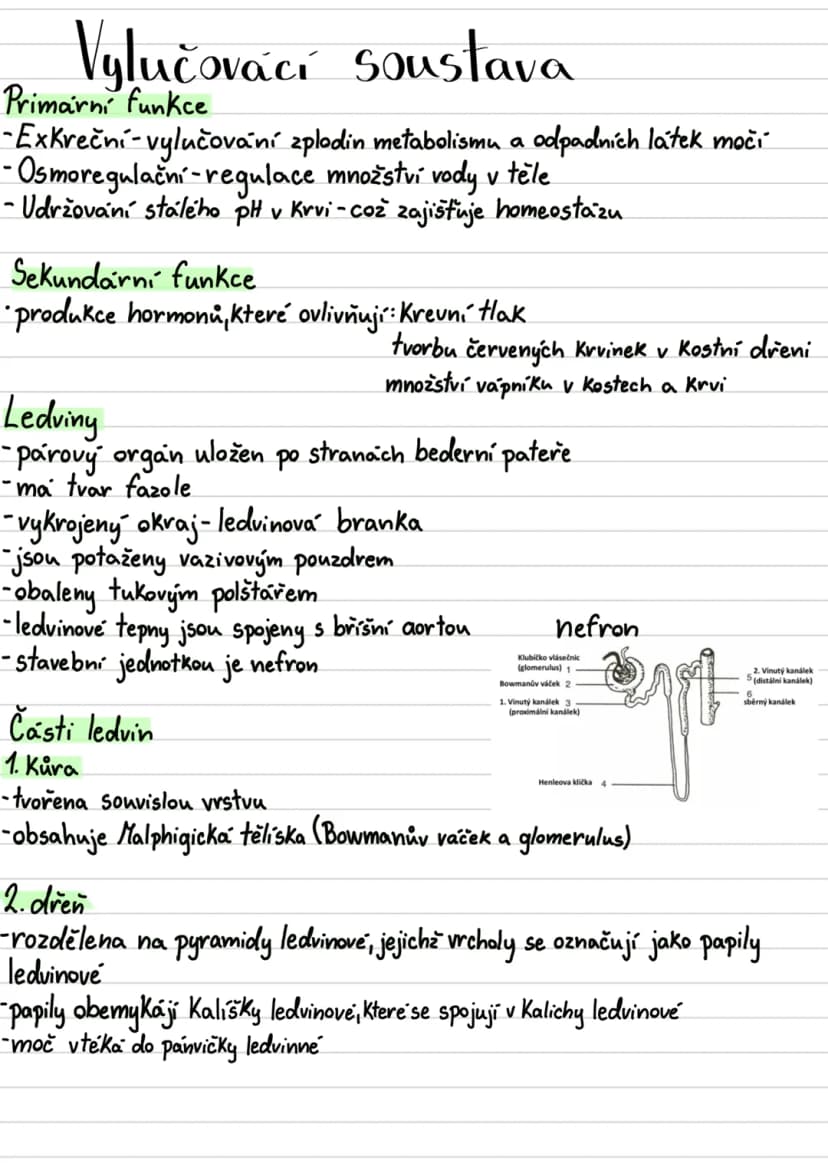 Vylučovací soustava
Primární funkce
-Exkreční-vylučování zplodin metabolismu a odpadních látek močí
-Osmoregulační-regulace množství vody v těle
-Udržování stálého pH v krvi-což zajišťuje homeostázu
Sekundární funkce
·produkce hormonů,které ovlivňují:krevní tlak
tvorbu červených krvinek v kostní dřeni
množství vápníku v kostech a krvi
Ledviny
-párový orgán uložen po stranách bederní páteře
-má tvar fazole
-vykrojený okraj-ledvinová branka
-jsou potaženy vazivovým pouzdrem
-obaleny tukovým polštářem
-ledvinové tepny jsou spojeny s břišní aortou
-stavební jednotkou je nefron
nefron
Klubíčko vlásečnic
(glomerulus) 1
Bowmanův váček 2
1. Vinutý kanálek 3
(proximální kanálek)
Henleova klička 4
2. Vinutý kanálek
5 (distální kanálek)
6
sběrný kanálek
Části ledvin
1. Kůra
-tvořena souvislou vrstvu
-obsahuje Malphigická tělíska (Bowmanův váček a glomerulus)
2. dřeň
-rozdělena na pyramidy ledvinové, jejichž vrcholy se označují jako papily
ledvinové
-papily obemykájí kalíšky ledvinové, které se spojují v kalichy ledvinové
-moč vtéká do pánvičky ledvinné